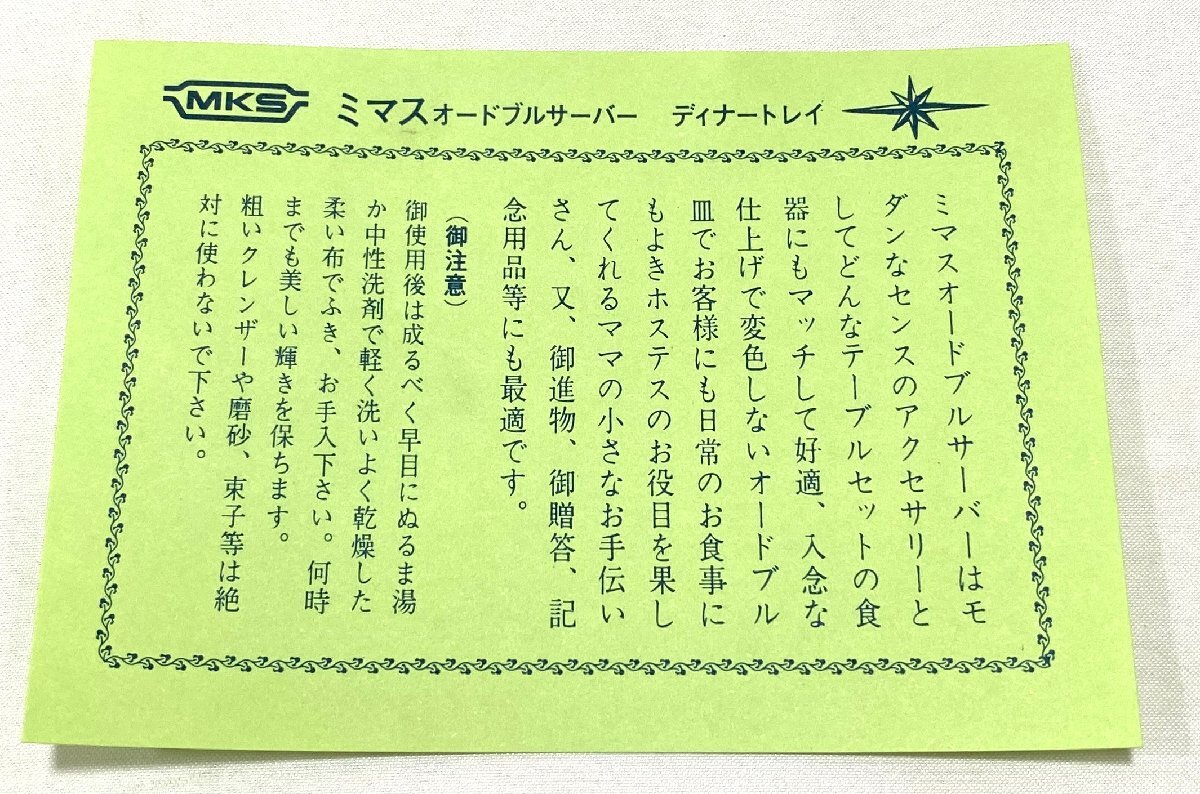 MKS ミマスオードブルサーバー ディナートレイ
ミマスオードブルサーバーはモ
ダンなセンスのアクセサリーと
してどんなテーブルセットの食
器にもマッチして好適、入念な
仕上げで変色しないオードブル
皿でお客様にも日常のお食事に
もよきホステスのお役目を果し
てくれるママの小さなお手伝い
さん、又、御進物、御贈答、記
念用品等にも最適です。
(御注意)
御使用後は成るべく早目にぬるま湯
か中性洗剤で軽く洗いよく乾燥した
柔い布でふき、お手入下さい。何時
までも美しい輝きを保ちます。
粗いクレンザーや磨砂、束子等は絶
対に使わないで下さい。